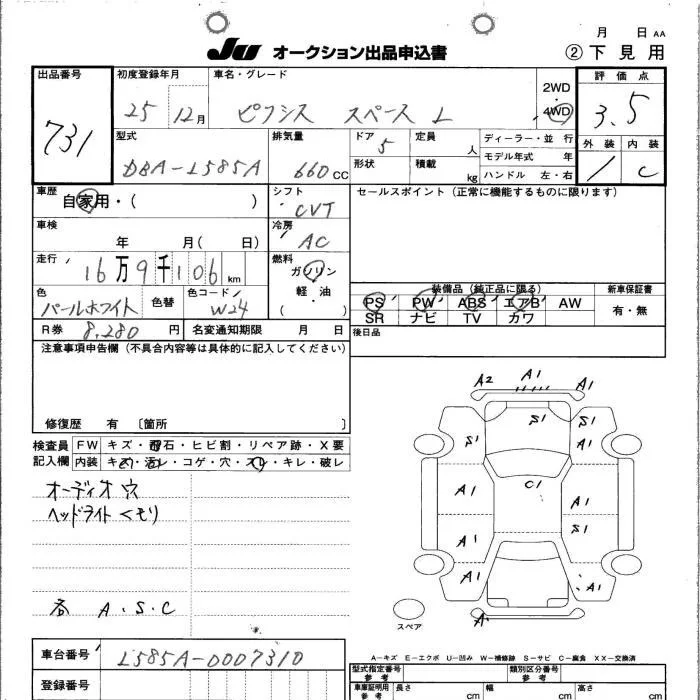 月 日 AA
JU オークション出品申込書 ② 下見用
出品番号 初度登録年月 車名・グレード 2WD 評価点
731 25 12月 ピクシス スペース L 4WD 3.5
型式 排気量 ドア 定員 ディーラー・並行 外装 内装
DBA-L585A 660cc 5 人 モデル年式 年 / C
形状 積載 kg ハンドル 左・右
車歴 シフト セールスポイント (正常に機能するものに限ります)
自家用・( ) CVT
車検 冷房
年 月( 日) AC
走行 燃料
16万9千106km ガソリン
色 色替 色コード 軽・油 装備品 (純正品に限る) 新車保証書
パールホワイト W24 ( ) PS PW ABS エアB AW 有・無
R券 8.280円 名変通知期限 月 日 SR ナビ TV カワ
注意事項申告欄 (不具合内容等は具体的に記入してください) 後日品
A2 A1 A1
S1 S1
S1 A1
修復歴 有 〔箇所 〕
検査員 FW キズ・飛石・ヒビ割・リペア跡・X要
記入欄 内装 キズ・汚レ・コゲ・穴・スレ・キレ・破レ
C1
オーディオ穴 A1 A1
ヘッドライトくもり S1
A1
A1 A1
各 A.S.C A1
スペア
A-キズ E-エクボ U-凹み W-補修跡 S-サビ C-腐食 XX-交換済
車台番号 L585A-0007310 型式指定番号 類別区分番号
参考 参考
登録番号 車庫証明用 長さ 幅 高さ
参考 cm cm cm